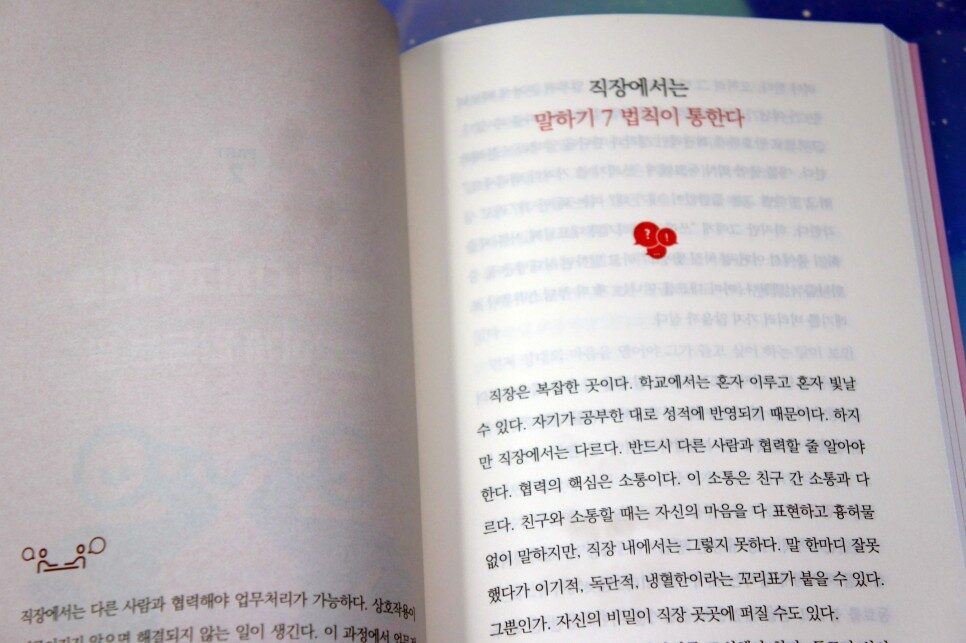 직장에서는 다른 사람과 협력해야 업무처리가 가능하다. 상호작용이
않으면 해결되지 않는 일이 생긴다. 이 과정에서
직장에서는
말하기 7 법칙이 통한다
? !
직장은 복잡한 곳이다. 학교에서는 혼자 이루고 혼자 빛날
수 있다. 자기가 공부한 대로 성적에 반영되기 때문이다. 하지
만 직장에서는 다르다. 반드시 다른 사람과 협력할 줄 알아야
한다. 협력의 핵심은 소통이다. 이 소통은 친구 간 소통과 다
르다. 친구와 소통할 때는 자신의 마음을 다 표현하고 흉허물
없이 말하지만, 직장 내에서는 그렇지 못하다. 말 한마디 잘못
했다가 이기적, 독단적, 냉혈한이라는 꼬리표가 붙을 수 있다.
그뿐인가. 자신의 비밀이 직장 곳곳에 퍼질 수도 있다.